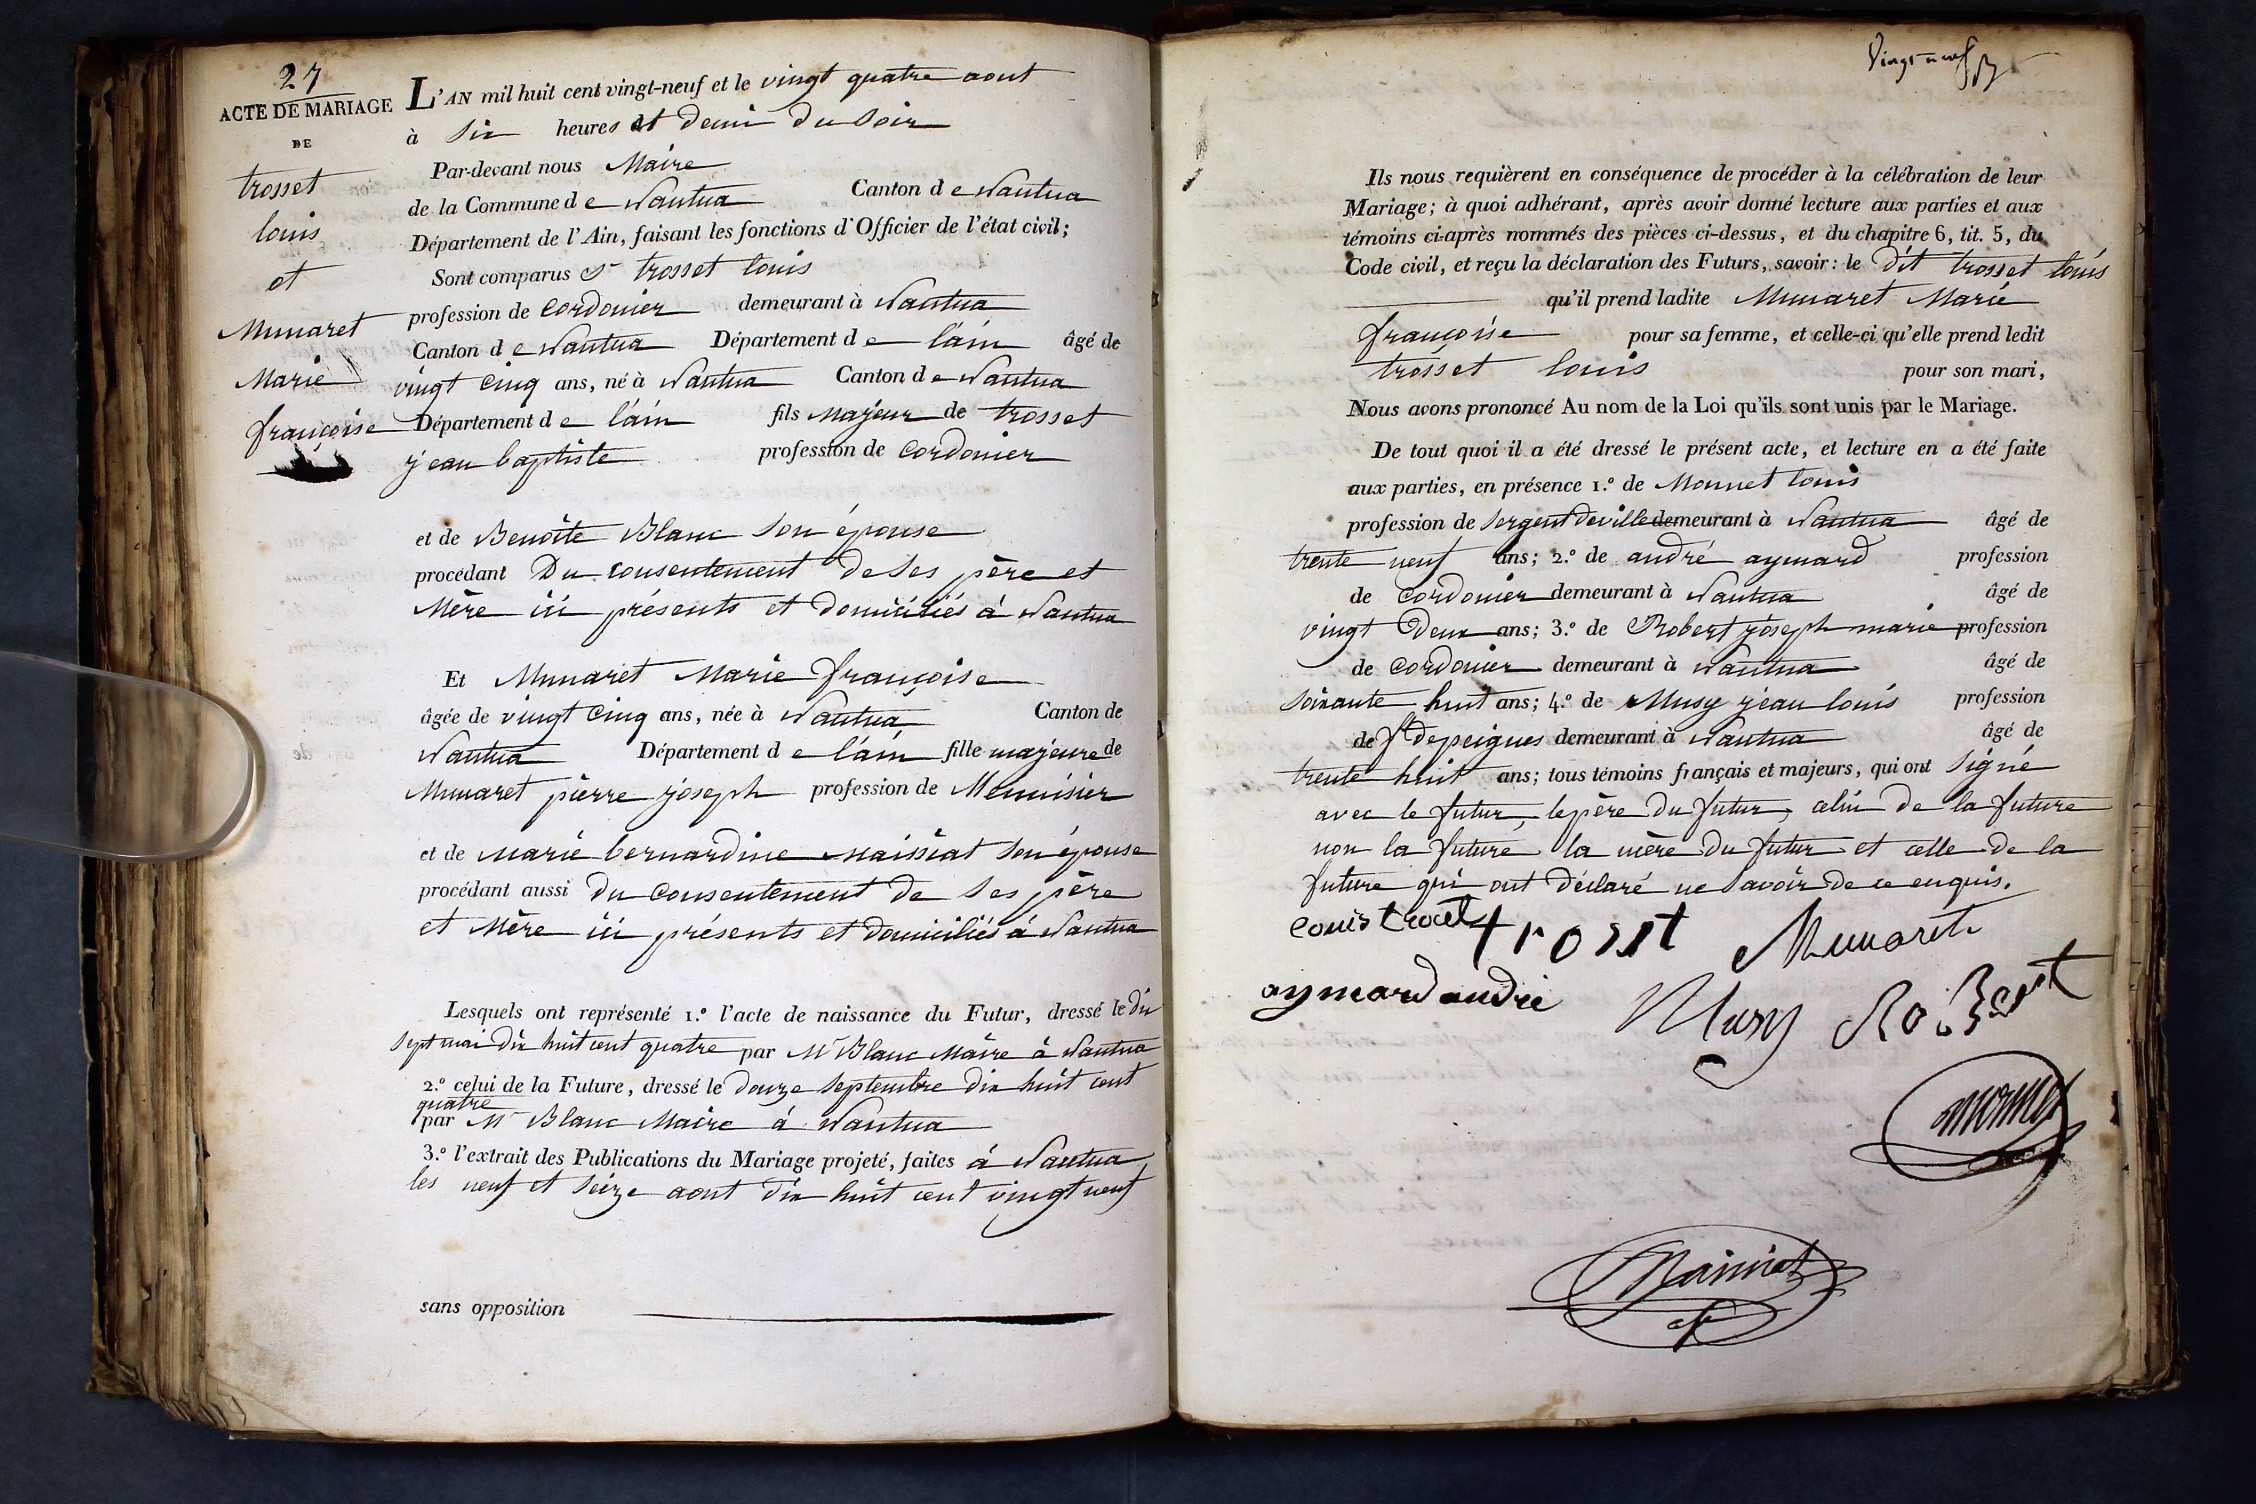 27
ACTE DE MARIAGE
DE
trosset
louis
et
Munaret
Marie
françoise
L'AN mil huit cent vingt-neuf et le vingt quatre aout
à Six heures et demi du Soir
Par-devant nous Maire
de la Commune de Nantua Canton de Nantua
Département de l'Ain, faisant les fonctions d'Officier de l'état civil;
Sont comparus Sr trosset louis
profession de Cordonier demeurant à Nantua
Canton de Nantua Département de l'ain âgé de
vingt cinq ans, né à Nantua Canton de Nantua
Département de l'ain fils Majeur de trosset
jean baptiste profession de Cordonier
et de Benoite Blanc Son épouse
procédant Du Consentement de Ses père et
Mère ici présents et domiciliés à Nantua
Et Munaret Marie françoise
âgée de vingt Cinq ans, née à Nantua Canton de
Nantua Département de l'ain fille majeure de
Munaret pierre joseph profession de Menuisier
et de marie bernardine Maissiat Son épouse
procédant aussi du Consentement de Ses père
et Mère ici présents et domiciliés à Nantua
Lesquels ont représenté 1.º l'acte de naissance du Futur, dressé le dix
Sept mai dix huit cent quatre par Mr Blanc Maire à Nantua
2.º celui de la Future, dressé le douze Septembre dix huit cent
quatre
par Mr Blanc Maire à Nantua
3.º l'extrait des Publications du Mariage projeté, faites à Nantua
les neuf et Seize aout dix huit cent vingt neuf
sans opposition
Vingt neuf
Ils nous requièrent en conséquence de procéder à la célébration de leur
Mariage; à quoi adhérant, après avoir donné lecture aux parties et aux
témoins ci-après nommés des pièces ci-dessus, et du chapitre 6, tit. 5, du
Code civil, et reçu la déclaration des Futurs, savoir: le dit trosset louis
qu'il prend ladite Munaret Marie
françoise pour sa femme, et celle-ci qu'elle prend ledit
trosset louis pour son mari,
Nous avons prononcé Au nom de la Loi qu'ils sont unis par le Mariage.
De tout quoi il a été dressé le présent acte, et lecture en a été faite
aux parties, en présence 1.º de Monnet louis
profession de Sergent de ville demeurant à Nantua âgé de
trente neuf ans; 2.º de andré aymard profession
de Cordonier demeurant à Nantua âgé de
vingt Deux ans; 3.º de Robert joseph marie profession
de Cordonier demeurant à Nantua âgé de
Soixante huit ans; 4.º de Musy jean louis profession
de ft de peignes demeurant à Nantua âgé de
trente huit ans; tous témoins français et majeurs, qui ont Signé
avec le futur, le père du futur, celui de la future
non la future, la mère du futur et celle de la
future qui ont déclaré ne Savoir de ce enquis.
trosset Munaret
aymard andre Musy Robert
monnet